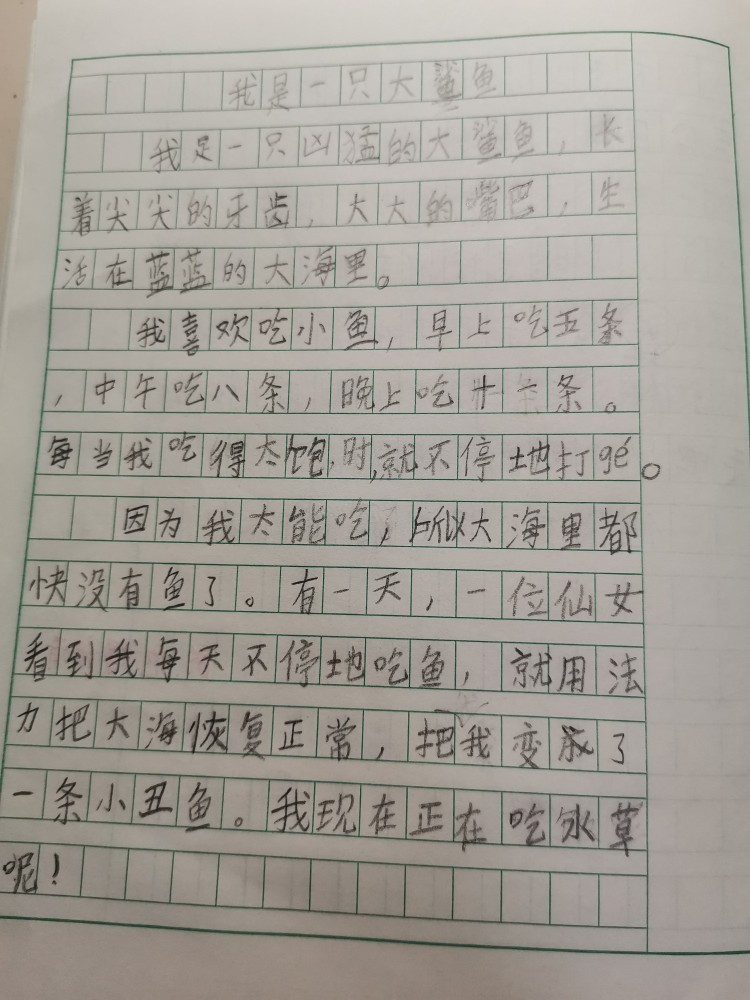 我是一只大鲨鱼
我是一只凶猛的大鲨鱼，长
着尖尖的牙齿，大大的嘴巴，生
活在蓝蓝的大海里。
我喜欢吃小鱼，早上吃五条
，中午吃八条，晚上吃十六条。
每当我吃得太饱时,就不停地打gé。
因为我太能吃，所以大海里都
快没有鱼了。有一天，一位仙女
看到我每天不停地吃鱼，就用法
力把大海恢复正常，把我变成了
一条小丑鱼。我现在正在吃水草
呢！